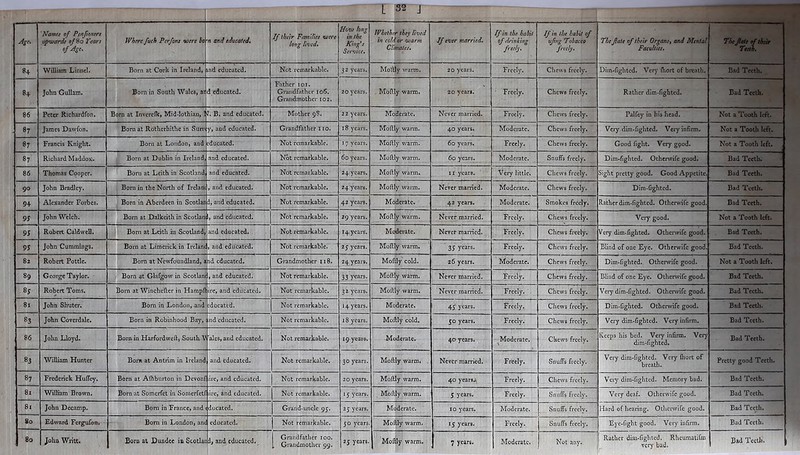 [ 32 ]
Age. | Names of Penſioners upwards of 80 Years of Age. | Where ſuch Perſons were born and educated. | If their Families were long lived. | How long in the King's Service. | Whether they lived in cold or warm Climates. | If ever married. | If in the habit of drinking freely. | If in the habit of uſing Tobacco freely. | The ſtate of their Organs, and Mental Faculties. | The ſtate of their Teeth.
84 | William Linsel. | Born at Cork in Ireland, and educated. | Not remarkable. | 32 years. | Moſtly warm. | 20 years. | Freely. | Chews freely. | Dim-ſighted. Very ſhort of breath. | Bad Teeth.
84 | John Gullam. | Born in South Wales, and educated. | Father 101. Grandfather 106. Grandmother 102. | 20 years. | Moſtly warm. | 20 years. | Freely. | Chews freely. | Rather dim-ſighted. | Bad Teeth.
86 | Peter Richardſon. | Born at Invereſk, Mid-lothian, N. B. and educated. | Mother 98. | 22 years. | Moderate. | Never married. | Freely. | Chews freely. | Palſey in his head. | Not a Tooth left.
87 | James Dawſon. | Born at Rotherhithe in Surrey, and educated. | Grandfather 110. | 18 years. | Moſtly warm. | 40 years. | Moderate. | Chews freely. | Very dim-ſighted. Very infirm. | Not a Tooth left.
87 | Francis Knight. | Born at London, and educated. | Not remarkable. | 17 years. | Moſtly warm. | 60 years. | Freely. | Chews freely. | Good ſight. Very good. | Not a Tooth left.
87 | Richard Maddox. | Born at Dublin in Ireland, and educated. | Not remarkable. | 60 years. | Moſtly warm. | 60 years. | Moderate. | Snuffs freely. | Dim-ſighted. Otherwiſe good. | Bad Teeth.
86 | Thomas Cooper. | Born at Leith in Scotland, and educated. | Not remarkable. | 24 years. | Moſtly warm. | 11 years. | Very little. | Chews freely. | Sight pretty good. Good Appetite. | Bad Teeth.
90 | John Bradley. | Born in the North of Ireland, and educated. | Not remarkable. | 24 years. | Moſtly warm. | Never married. | Moderate. | Chews freely. | Dim-ſighted. | Bad Teeth.
94 | Alexander Forbes. | Born in Aberdeen in Scotland, and educated. | Not remarkable. | 42 years. | Moderate. | 42 years. | Moderate. | Smokes freely. | Rather dim-ſighted. Otherwiſe good. | Bad Teeth.
95 | John Welch. | Born at Dalkeith in Scotland, and educated. | Not remarkable. | 29 years. | Moſtly warm. | Never married. | Freely. | Chews freely. | Very good. | Not a Tooth left.
95 | Robert Caldwell. | Born at Leith in Scotland, and educated. | Not remarkable. | 14 years. | Moderate. | Never married. | Freely. | Chews freely. | Very dim-ſighted. Otherwiſe good. | Bad Teeth.
95 | John Cummings. | Born at Limerick in Ireland, and educated. | Not remarkable. | 25 years. | Moſtly warm. | 35 years. | Freely. | Chews freely. | Blind of one Eye. Otherwiſe good. | Bad Teeth.
82 | Robert Pottle. | Born at Newfoundland, and educated. | Grandmother 118. | 24 years. | Moſtly cold. | 26 years. | Moderate. | Chews freely. | Dim-ſighted. Otherwiſe good. | Not a Tooth left.
89 | George Taylor. | Born at Glaſgow in Scotland, and educated. | Not remarkable. | 33 years. | Moſtly warm. | Never married. | Freely. | Chews freely. | Blind of one Eye. Otherwiſe good. | Bad Teeth.
85 | Robert Toms. | Born at Wincheſter in Hampſhire, and educated. | Not remarkable. | 32 years. | Moſtly warm. | Never married. | Freely. | Chews freely. | Very dim-ſighted. Otherwiſe good. | Bad Teeth.
81 | John Sluter. | Born in London, and educated. | Not remarkable. | 14 years. | Moderate. | 45 years. | Freely. | Chews freely. | Dim-ſighted. Otherwiſe good. | Bad Teeth.
83 | John Coverdale. | Born in Robinhood Bay, and educated. | Not remarkable. | 18 years. | Moſtly cold. | 50 years. | Freely. | Chews freely. | Very dim-ſighted. Very infirm. | Bad Teeth.
86 | John Lloyd. | Born in Harfordweſt, South Wales, and educated. | Not remarkable. | 19 years. | Moderate. | 40 years. | Moderate. | Chews freely. | Keeps his bed. Very infirm. Very dim-ſighted. | Bad Teeth.
83 | William Hunter | Born at Antrim in Ireland, and educated. | Not remarkable. | 30 years. | Moſtly warm. | Never married. | Freely. | Snuffs freely. | Very dim-ſighted. Very ſhort of breath. | Pretty good Teeth.
87 | Frederick Huſſey. | Born at Aſhburton in Devonſhire, and educated. | Not remarkable. | 20 years. | Moſtly warm. | 40 years. | Freely. | Chews freely. | Very dim-ſighted. Memory bad. | Bad Teeth.
81 | William Brown. | Born at Somerſet in Somerſetſhire, and educated. | Not remarkable. | 15 years. | Moſtly warm. | 5 years. | Freely. | Snuffs freely. | Very deaf. Otherwiſe good. | Bad Teeth.
81 | John Decamp. | Born in France, and educated. | Grand-uncle 95. | 25 years. | Moderate. | 10 years. | Moderate. | Snuffs freely. | Hard of hearing. Otherwiſe good. | Bad Teeth.
80 | Edward Ferguſon. | Born in London, and educated. | Not remarkable. | 50 years. | Moſtly warm. | 15 years. | Freely. | Snuffs freely. | Eye-ſight good. Very infirm. | Bad Teeth.
80 | John Writt. | Born at Dundee in Scotland, and educated. | Grandfather 100. Grandmother 99. | 25 years. | Moſtly warm. | 7 years. | Moderate. | Not any. | Rather dim-ſighted. Rheumatiſm very bad. | Bad Teeth.